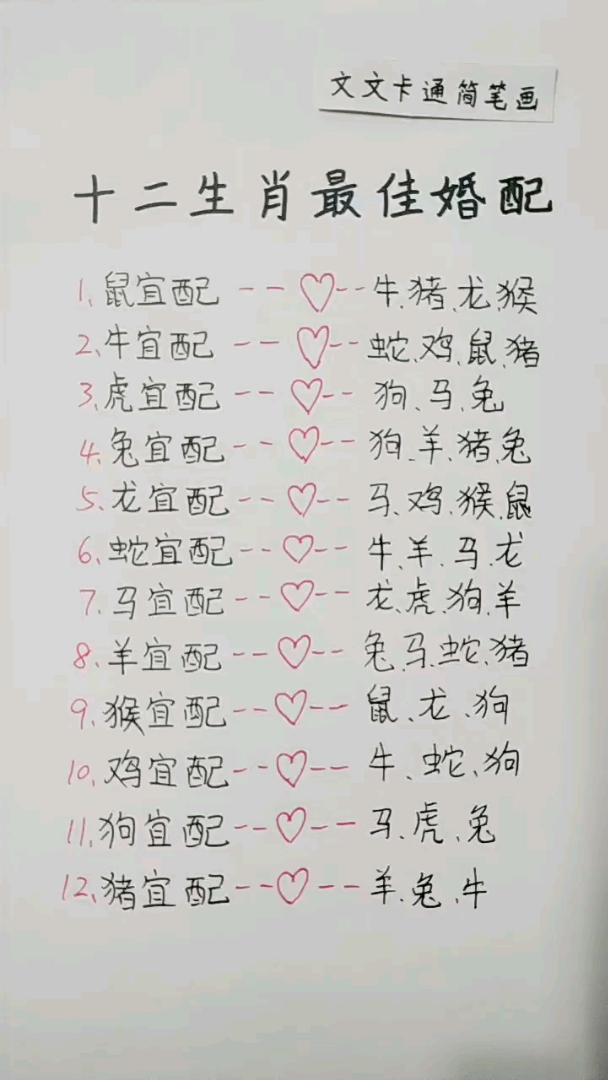 文文卡通简笔画
十二生肖最佳婚配
1、鼠宜配--♡--牛、猪、龙、猴
2、牛宜配--♡--蛇、鸡、鼠、猪
3、虎宜配--♡--狗、马、兔
4、兔宜配--♡--狗、羊、猪、兔
5、龙宜配--♡--马、鸡、猴、鼠
6、蛇宜配--♡--牛、羊、马、龙
7、马宜配--♡--龙、虎、狗、羊
8、羊宜配--♡--兔、马、蛇、猪
9、猴宜配--♡--鼠、龙、狗
10、鸡宜配--♡--牛、蛇、狗
11、狗宜配--♡--马、虎、兔
12、猪宜配--♡--羊、兔、牛